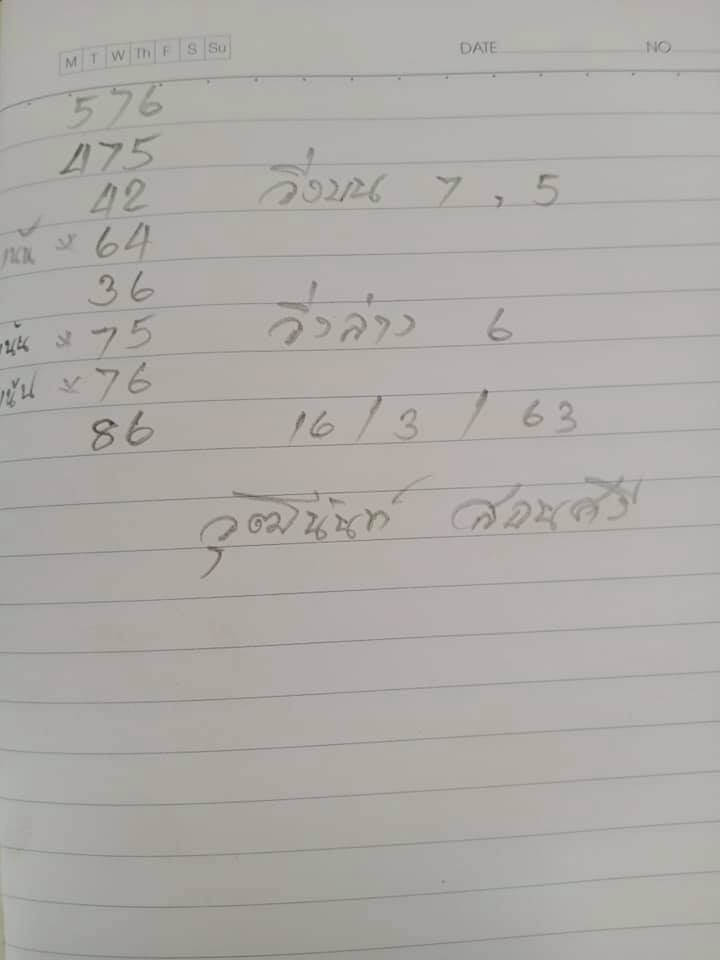 M T W Th F S Su DATE NO
576
475
42 วิ่งบน 7 , 5
64
36
เน้น × 75 วิ่งล่าง 6
เน้น × 76
86 16 / 3 / 63
วุฒินันท์ สอนศรี